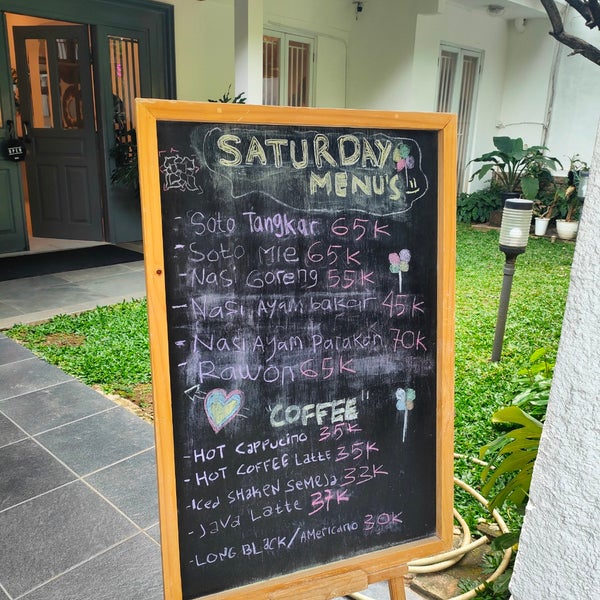 SATURDAY
MENU'S
- Soto Tangkar 65K
- Soto Mie 65K
- Nasi Goreng 55K
- Nasi Ayam bakar 45K
- Nasi Ayam Padakan 70K
- Rawon 65K
"COFFEE"
- HOT Cappucino 35K
- HOT COFFEE Latte 35K
- Iced SHAKEN Semeja 33K
- JAVA Latte 37K
- LONG BLACK/Americano 30K
OPEN